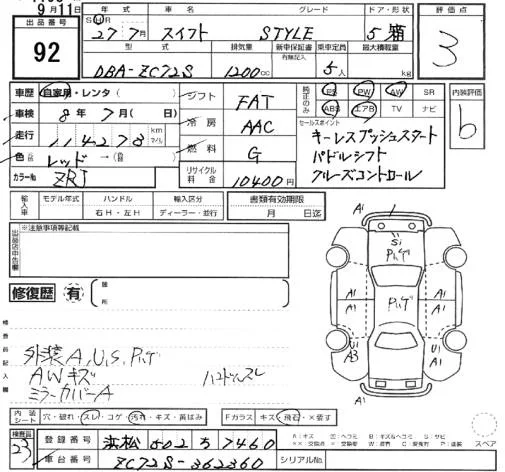 9月11日
出品番号
92
年式 車名 グレード ドア・形状
S H R
27年7月 スイフト STYLE 5 箱
型式 排気量 新車保証書 乗車定員 最大積載量
有無記入
DBA-ZC72S 1200cc 5人 kg
評価点
3
車歴 自家用・レンタ ( )
車検 8年7月( 日)
走行 114278 km マイル
色 レッド → (色替)
カラーNo. ZRJ
シフト FAT
冷房 AAC
燃料 G
リサイクル料金 10400円
純正のみ PS PW AW SR
ABS エアB TV ナビ
セールスポイント
キーレスプッシュスタート
パドルシフト
クルーズコントロール
内装評価
b
輸入車 モデル年式 ハンドル 輸入区分
右H・左H ディーラー・並行
書類有効期限
月 日迄
出品店申告欄
※注意事項等記載
修復歴 有 箇所
検査員記入欄
外装A,U,S,Pキズ
AWキズ
ミラーカバーA
ハンドルスレ
A1 1 A1
S1
Pキズ
A1 A1 A1 A1
Pキズ
U1 A3 U1 A1
内装シート 穴・破れ・スレ・コゲ・汚れ・キズ・黄ばみ Fガラス キズ・飛石・×要す
検査員 23
登録番号 浜松 502 ち 7460
車台番号 ZC72S-362360 シリアルNo.
A:キズ U:ヘコミ B:キズ&ヘコミ S:サビ
スペア